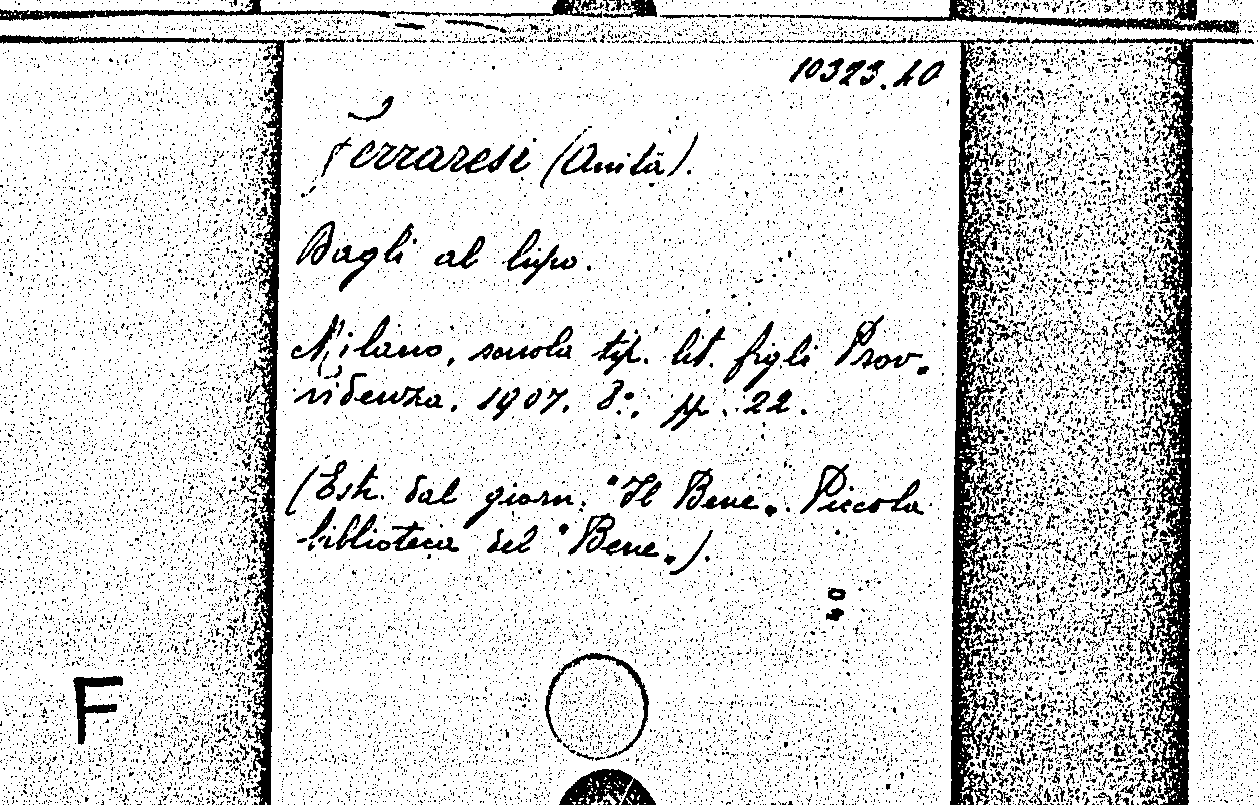 10323.40
Ferraresi (Anita).
Dagli al lupo.
Milano, scuola tip. lit. figli Prov-
videnza. 1907. 8°. pp. 22.
(Estr. dal giorn. "Il Bene". Piccola
biblioteca del "Bene").
40
F